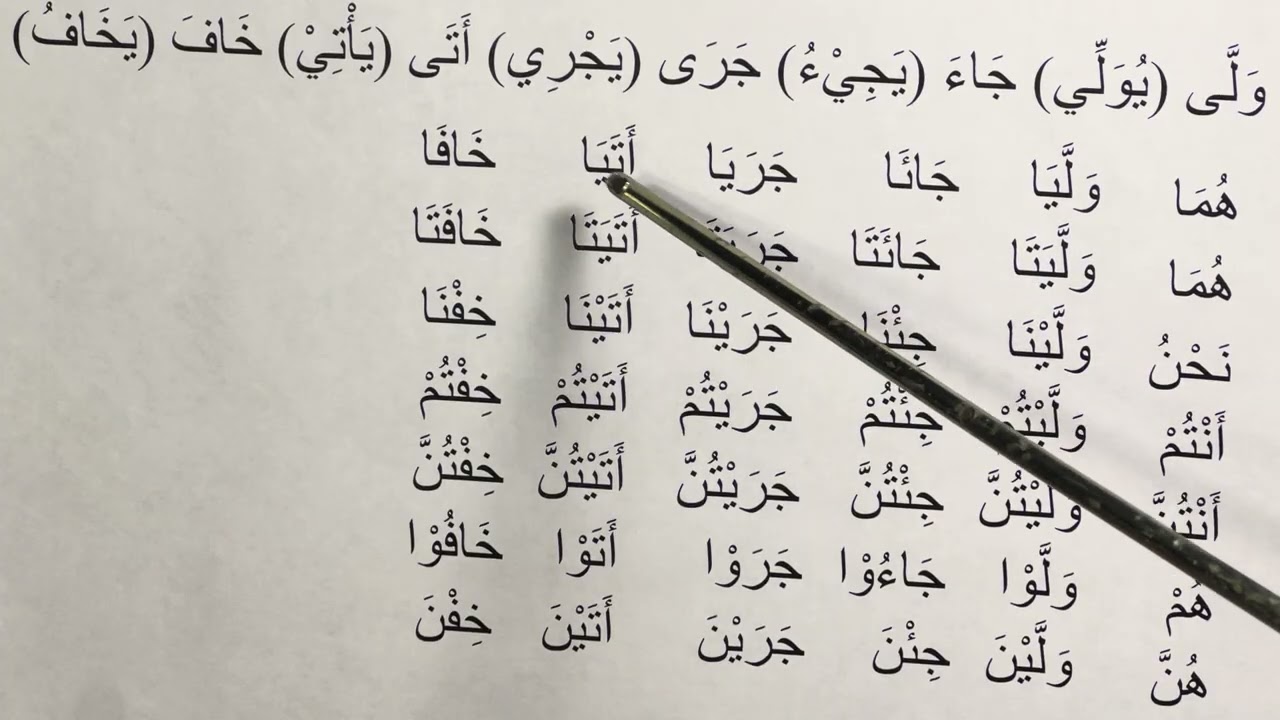 وَلَّى (يُوَلِّي) جَاءَ (يَجِيْءُ) جَرَى (يَجْرِي) أَتَى (يَأْتِيْ) خَافَ (يَخَافُ)
هُمَا وَلَّيَا جَائَا جَرَيَا أَتَيَا خَافَا
هُمَا وَلَّيَتَا جَائَتَا جَرَيَتَا أَتَيَتَا خَافَتَا
نَحْنُ وَلَّيْنَا جِئْنَا جَرَيْنَا أَتَيْنَا خِفْنَا
أَنْتُمْ وَلَّيْتُمْ جِئْتُمْ جَرَيْتُمْ أَتَيْتُمْ خِفْتُمْ
أَنْتُنَّ وَلَّيْتُنَّ جِئْتُنَّ جَرَيْتُنَّ أَتَيْتُنَّ خِفْتُنَّ
هُمْ وَلَّوْا جَاءُوْا جَرَوْا أَتَوْا خَافُوْا
هُنَّ وَلَّيْنَ جِئْنَ جَرَيْنَ أَتَيْنَ خِفْنَ